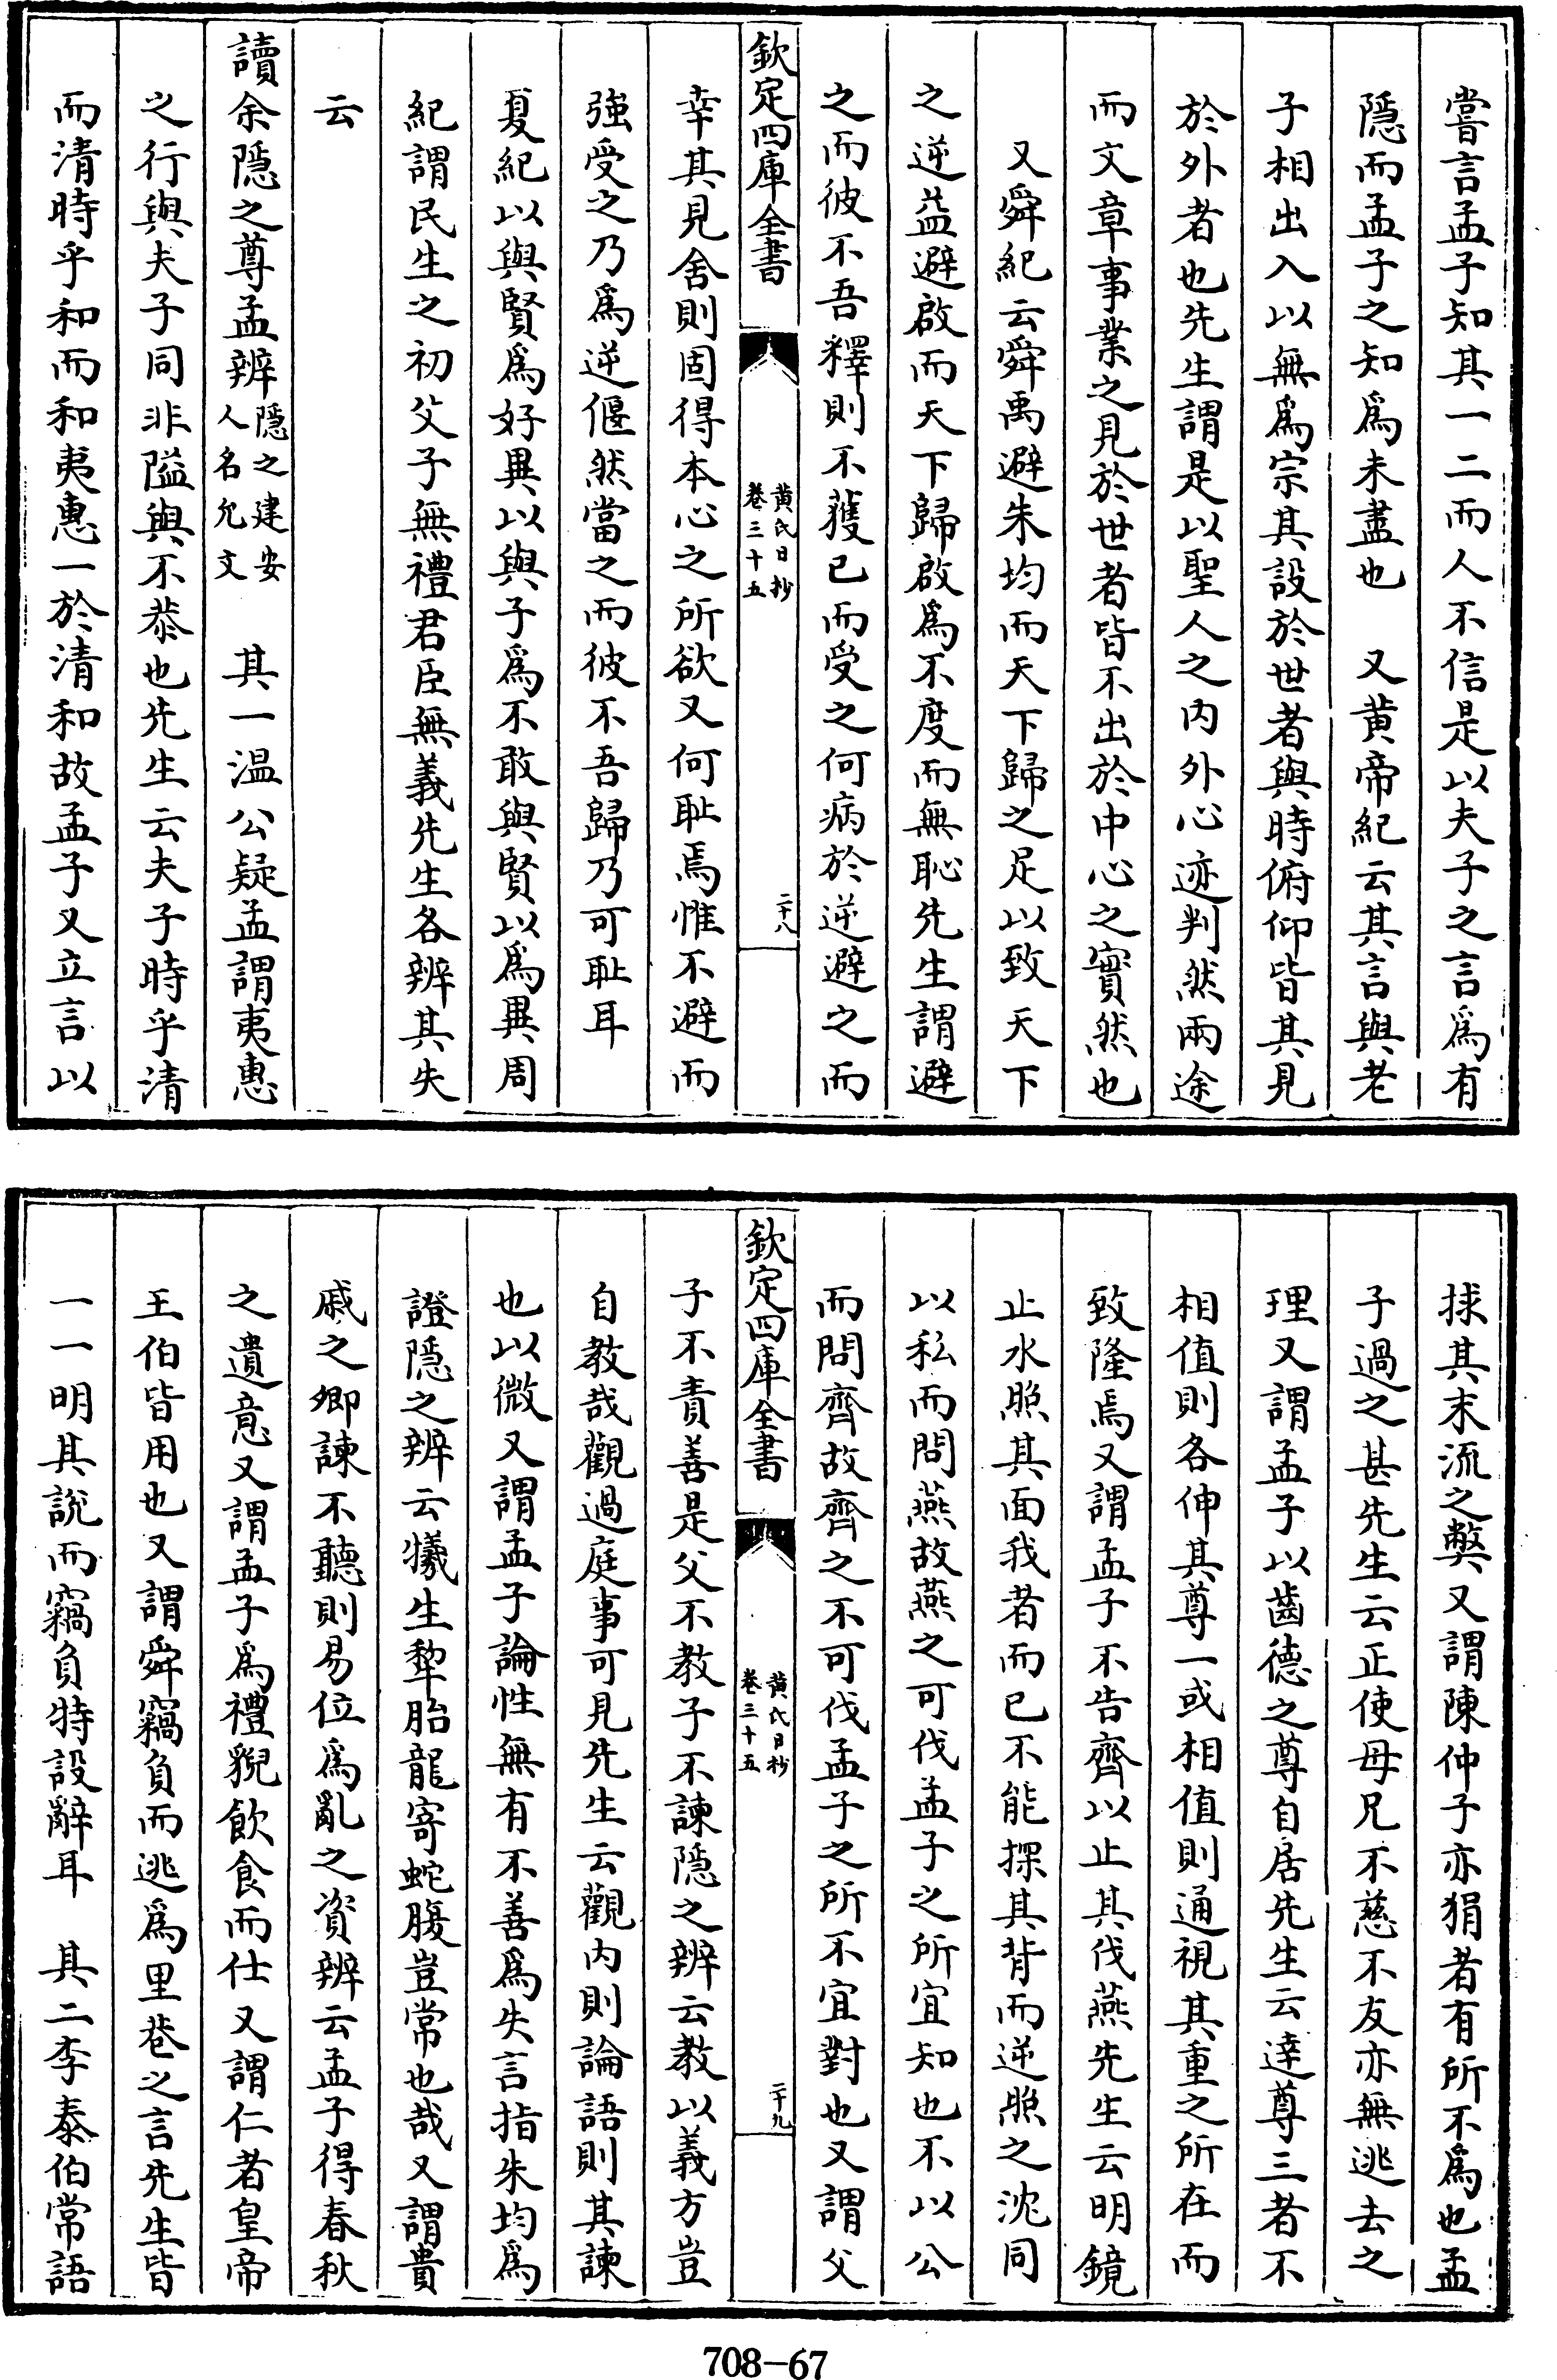 嘗言孟子知其一二而人不信是以夫子之言爲有
隱而孟子之知爲未盡也　又黄帝紀云其言與老
子相出入以無爲宗其設於世者與時俯仰皆其見
於外者也先生謂是以聖人之内外心迹判然兩途
而文章事業之見於世者皆不出於中心之實然也
又舜紀云舜禹避朱均而天下歸之足以致天下
之逆益避啟而天下歸啟爲不度而無恥先生謂避
之而彼不吾釋則不獲已而受之何病於逆避之而
欽定四庫全書
黄氏日抄
卷三十五
二十八
幸其見舍則固得本心之所欲又何恥焉惟不避而
強受之乃爲逆偃然當之而彼不吾歸乃可恥耳
夏紀以與賢爲好異以與子爲不敢與賢以爲異周
紀謂民生之初父子無禮君臣無義先生各辨其失
云
讀余隱之尊孟辨隱之建安人名允文　其一温公疑孟謂夷惠
之行與夫子同非隘與不恭也先生云夫子時乎清
而清時乎和而和夷惠一於清和故孟子又立言以
捄其末流之弊又謂陳仲子亦狷者有所不爲也孟
子過之甚先生云正使母兄不慈不友亦無逃去之
理又謂孟子以齒德之尊自居先生云達尊三者不
相值則各伸其尊一或相值則通視其重之所在而
致隆焉又謂孟子不告齊以止其伐燕先生云明鏡
止水照其面我者而已不能探其背而逆照之沈同
以私而問燕故燕之可伐孟子之所宜知也不以公
而問齊故齊之不可伐孟子之所不宜對也又謂父
欽定四庫全書
黄氏日抄
卷三十五
二十九
子不責善是父不教子不諫隱之辨云教以義方豈
自教哉觀過庭事可見先生云觀内則論語則其諫
也以微又謂孟子論性無有不善爲失言指朱均爲
證隱之辨云犧生犂胎龍寄蛇腹豈常也哉又謂貴
戚之卿諫不聽則易位爲亂之資辨云孟子得春秋
之遺意又謂孟子爲禮貌飲食而仕又謂仁者皇帝
王伯皆用也又謂舜竊負而逃爲里巷之言先生皆
一一明其說而竊負特設辭耳　其二李泰伯常語
708-67